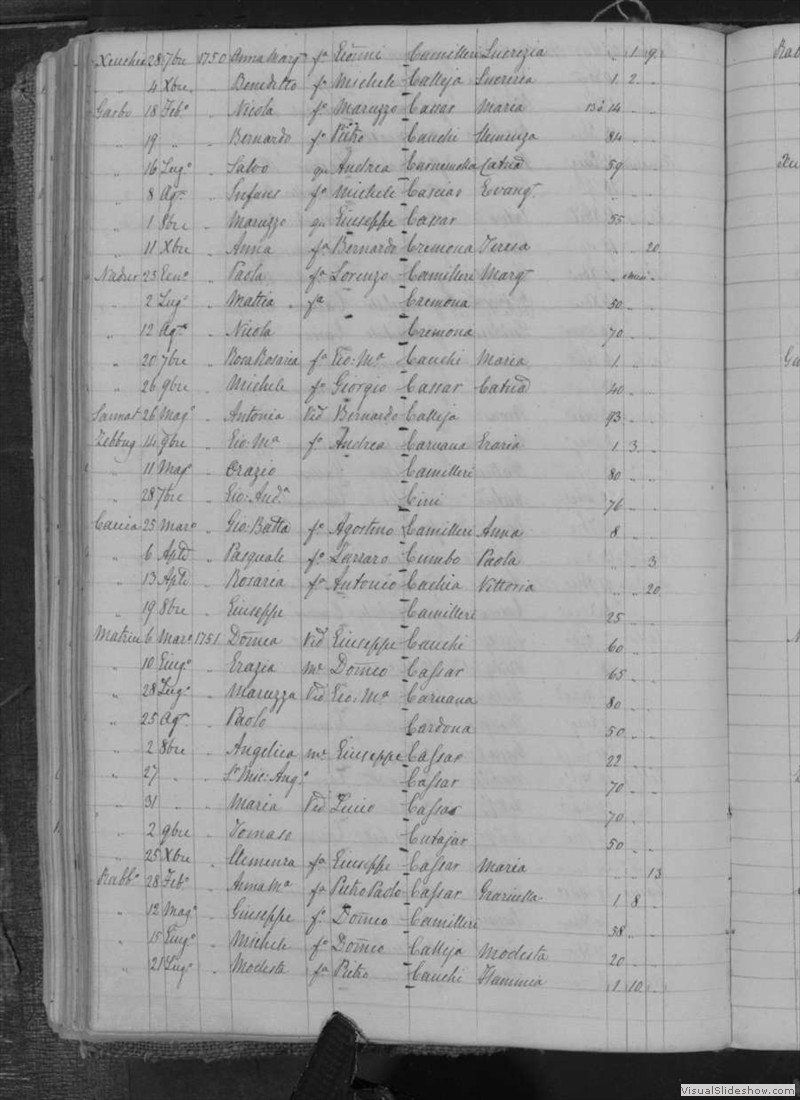 Xeuchia 28 7bre 1750 Anna Marga fa Gionni Camilleri Lucrezia .. 1 9
" 4 Xbre " Benedetto fo Michele Calleja Lucrezia 1 2 ..
Garbo 18 Febo " Nicola fo Maruzzo Cassar Maria 14 ..
" 19 " " Bernardo fo Pietro Cauchi Clemenza 84 ..
" 16 Lugo " Salvo qm Andrea 59 ..
" 8 Ago " fo Michele Evangta
" 1 8bre " Maruzzo qm Giuseppe Cassar 55 ..
" 11 Xbre " Anna fa Bernardo Cremona Teresa .. .. 20
Nadur 23 " Paola fa Lorenzo Camilleri Marga
" 2 Lugo " Mattia fa Cremona 50 ..
" 12 Ago " Nicola Cremona 70 ..
" 20 7bre " Rosa Rosaria fa Gio: Ma Cauchi Maria 1 ..
" 26 9bre " Michele fo Giorgio Cassar Catnd 40 ..
Sannat 26 Mago " Antonia Vid Bernardo Calleja 93 ..
Zebbug 14 9bre " Gio: Ma fo Andrea Caruana Grazia 1 3 ..
" 11 Mago " Orazio Camilleri 80 ..
" 28 7bre " Gio: Anda Cini 76 ..
Caccia 25 Maro " Gio: Batta fo Agostino Camilleri Anna 8 ..
" 6 Aple " Pasquale fo Lazzaro Cumbo Paola .. .. 3
" 13 Aple " Rosaria fa Antonio Cachia Vittoria .. .. 20
" 19 8bre " Giuseppe Camilleri 25 ..
Matrice 6 Maro 1751 Domca Vid Giuseppe Cauchi 60
" 10 Giugo " Grazia me Domco Cassar 65
" 28 Lugo " Maruzza Vid Gio: Ma Caruana 80
" 25 Ago " Paolo Cardona 50 ..
" 2 8bre " Angelica me Giuseppe Cassar 22 ..
" 27 " " Sr Mic: Ango Cassar 70 ..
" 31 " Maria Vid Cassar 70 ..
" 2 9bre " Tomaso Cutajar 50 ..
" 25 Xbre " Clemenza fa Giuseppe Cassar Maria .. .. 13
Rabbo 28 Febo " Anna Ma fa Pietro Paolo Cassar Graziella 1 8 ..
" 12 Mago " Giuseppe fo Domco Camilleri 38 ..
" 15 Giugo " Michele fo Domco Calleja Modesta 20 ..
" 21 Lugo " Modesta fa Pietro Cauchi Flaminia 1 10 ..
VisualSlideshow.com